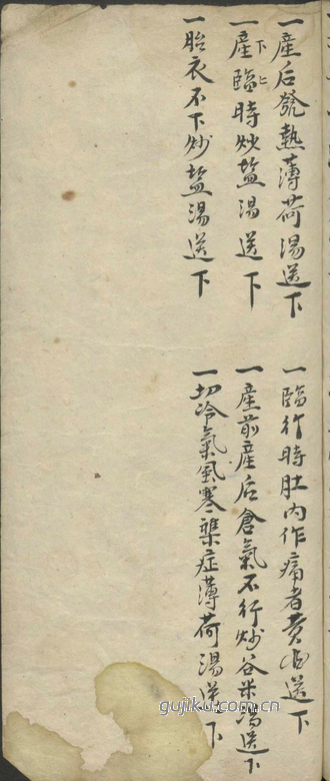 一産后發熱薄荷湯送下
一臨行時肚内作痛者黄酒送下
一産臨時炒塩湯送下
下上
一産前産后倉氣不行炒谷米湯送下
一胎衣不下炒塩湯送下
一切冷氣風寒雜症薄荷湯送下
gujiku.com.cn